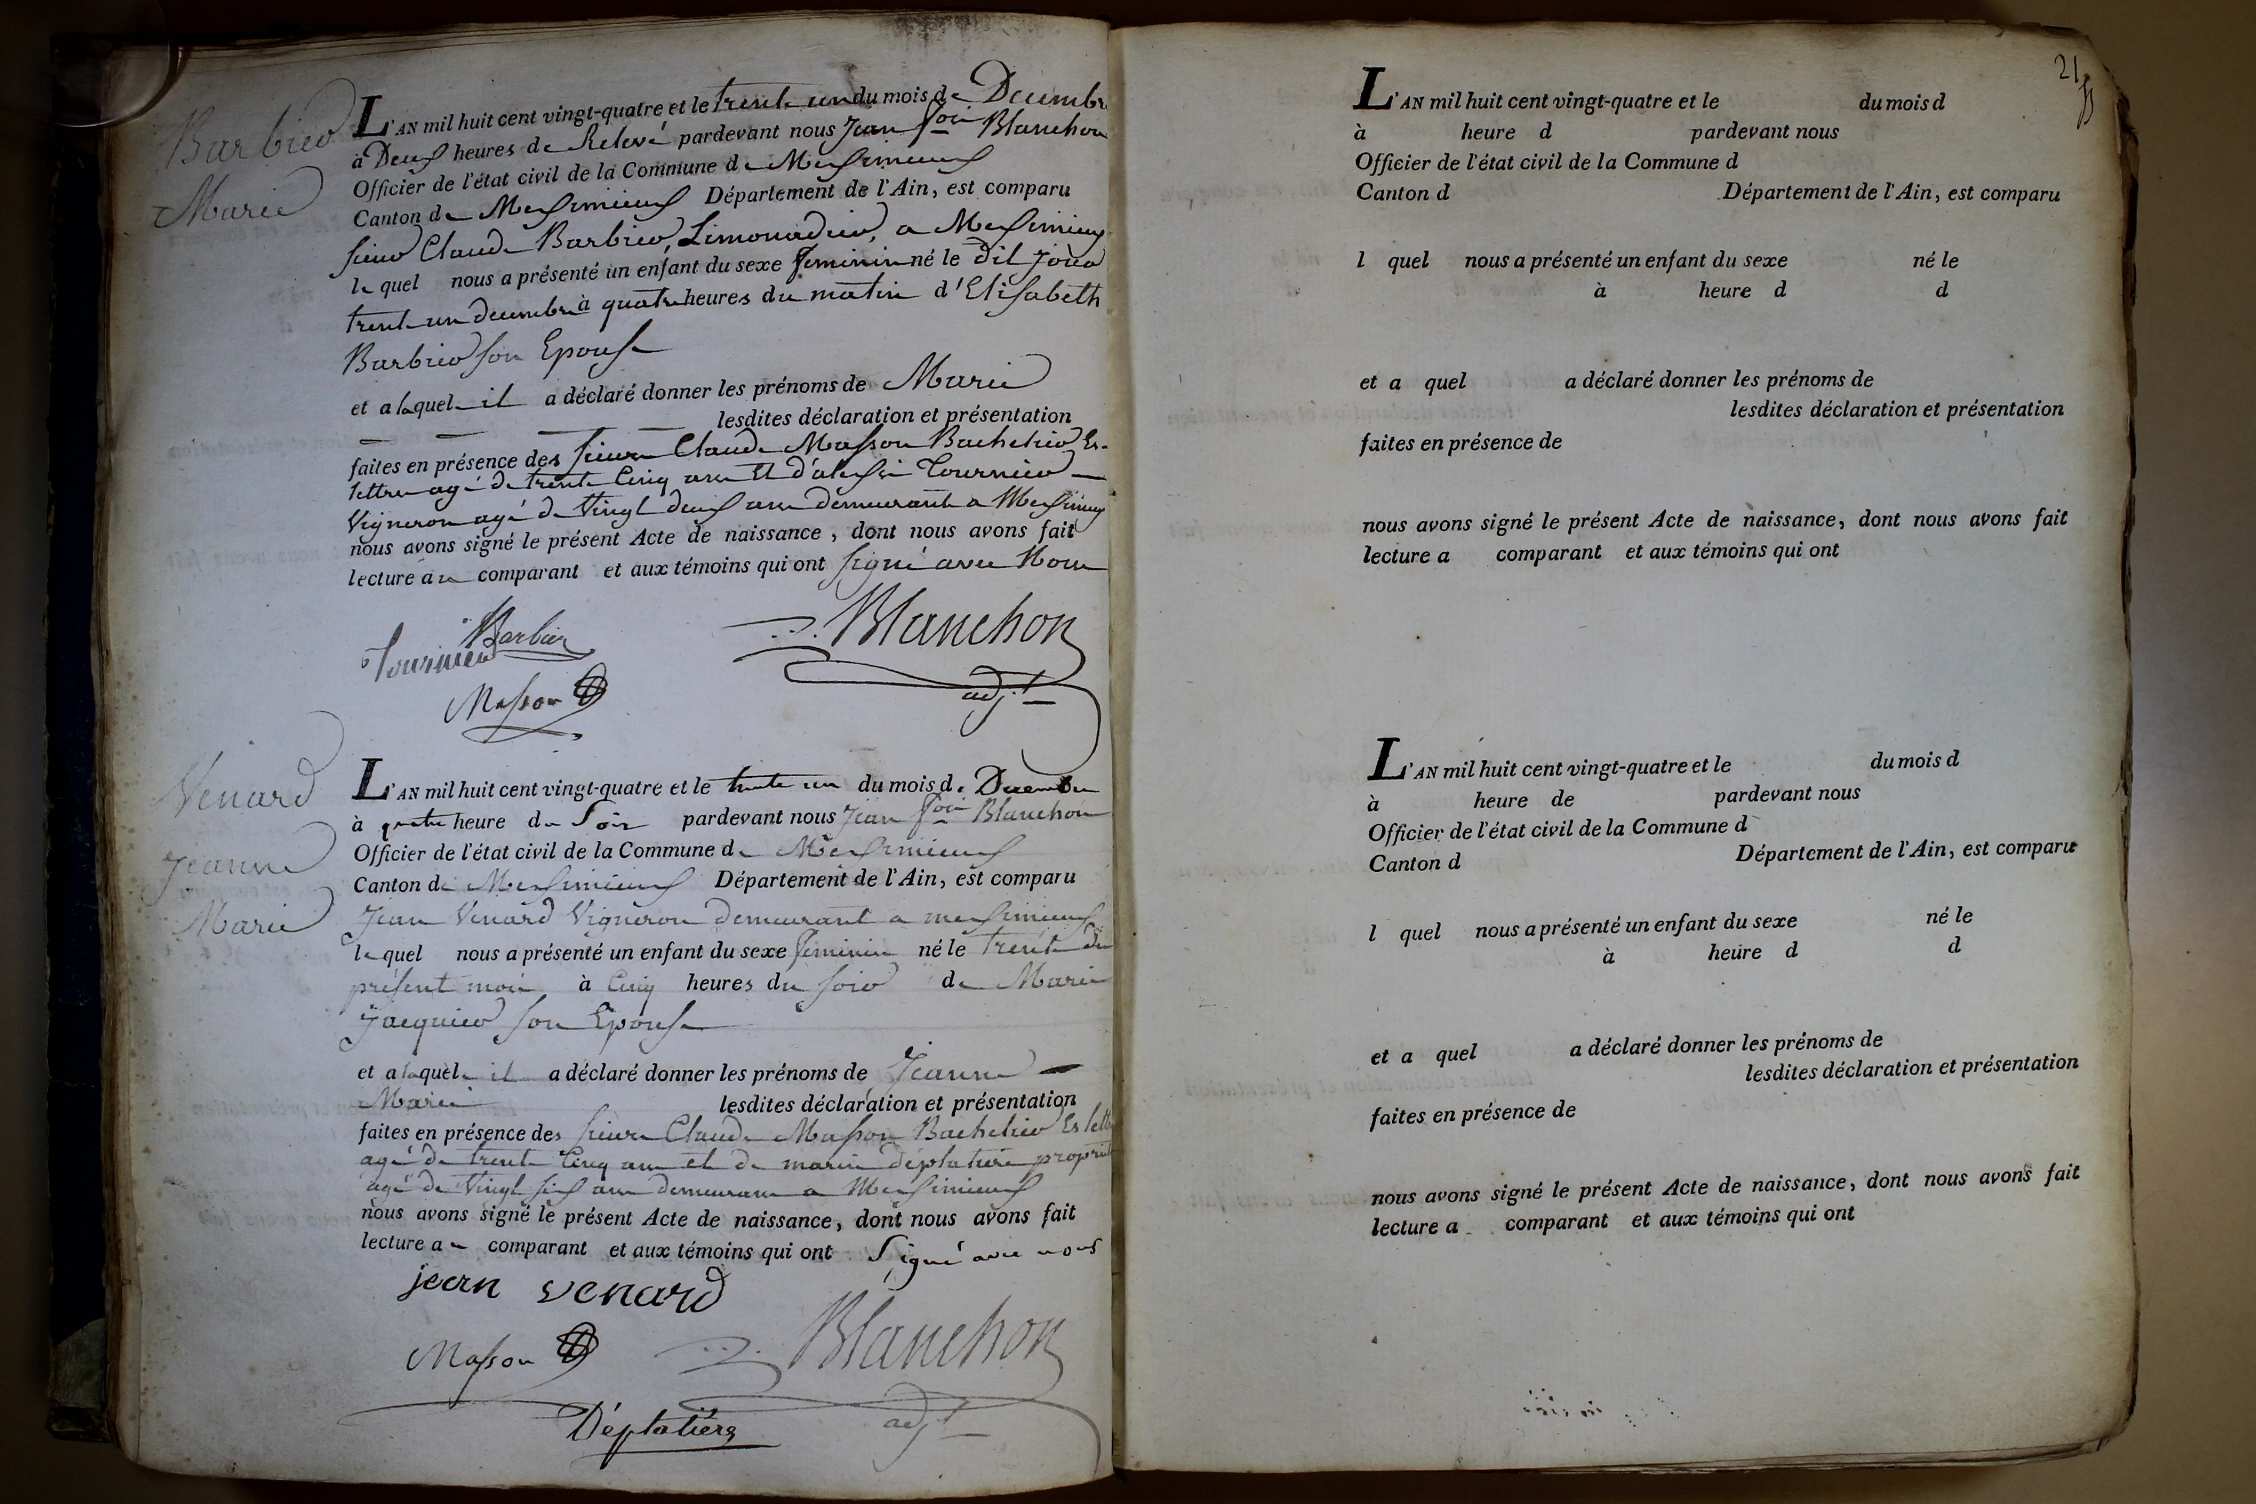 Barbier
Marie
L'AN mil huit cent vingt-quatre et le trente un du mois de Decembre
à Deux heures de Relevé pardevant nous Jean fois Blanchon
Officier de l'état civil de la Commune de Meximieux
Canton de Meximieux Département de l'Ain, est comparu
sieur Claude Barbier, Limonadier, a Meximieux
lequel nous a présenté un enfant du sexe feminin né le dit jour
trente un decembre à quatre heures du matin d'Elisabeth
Barbier son Epouse
et a laquelle il a déclaré donner les prénoms de Marie
lesdites déclaration et présentation
faites en présence des sieurs Claude Masson Bachelier Es-
lettres agé de trente Cinq ans et d'alexi Tournier
Vigneron agé de Vingt deux ans demeurant a Meximieux
nous avons signé le présent Acte de naissance, dont nous avons fait
lecture au comparant et aux témoins qui ont signé avec Nous
Barbier
Tournier
Blanchon
Masson
adjt
Venard
Jeanne
Marie
L'AN mil huit cent vingt-quatre et le trente un du mois de Decembre
à quatre heure du Soir pardevant nous Jean fois Blanchon
Officier de l'état civil de la Commune de Meximieux
Canton de Meximieux Département de l'Ain, est comparu
Jean Venard Vigneron demeurant a meximieux
lequel nous a présenté un enfant du sexe feminin né le trente du
présent mois à Cinq heures du soir de Marie
Jacquier son Epouse
et a laquelle il a déclaré donner les prénoms de Jeanne
Marie lesdites déclaration et présentation
faites en présence des sieurs Claude Masson Bachelier Es lett
agé de trente Cinq ans et de marin déplatière propriét
agé de Vingt six ans demeurans a Meximieux
nous avons signé le présent Acte de naissance, dont nous avons fait
lecture au comparant et aux témoins qui ont Signé avec nous
jean venard
Masson
Blanchon
Déplatière
adjt
21
L'AN mil huit cent vingt-quatre et le du mois d
à heure d pardevant nous
Officier de l'état civil de la Commune d
Canton d Département de l'Ain, est comparu
l quel nous a présenté un enfant du sexe né le
à heure d d
et a quel a déclaré donner les prénoms de
lesdites déclaration et présentation
faites en présence de
nous avons signé le présent Acte de naissance, dont nous avons fait
lecture a comparant et aux témoins qui ont
L'AN mil huit cent vingt-quatre et le du mois d
à heure de pardevant nous
Officier de l'état civil de la Commune d
Canton d Département de l'Ain, est comparu
l quel nous a présenté un enfant du sexe né le
à heure d d
et a quel a déclaré donner les prénoms de
lesdites déclaration et présentation
faites en présence de
nous avons signé le présent Acte de naissance, dont nous avons fait
lecture a comparant et aux témoins qui ont